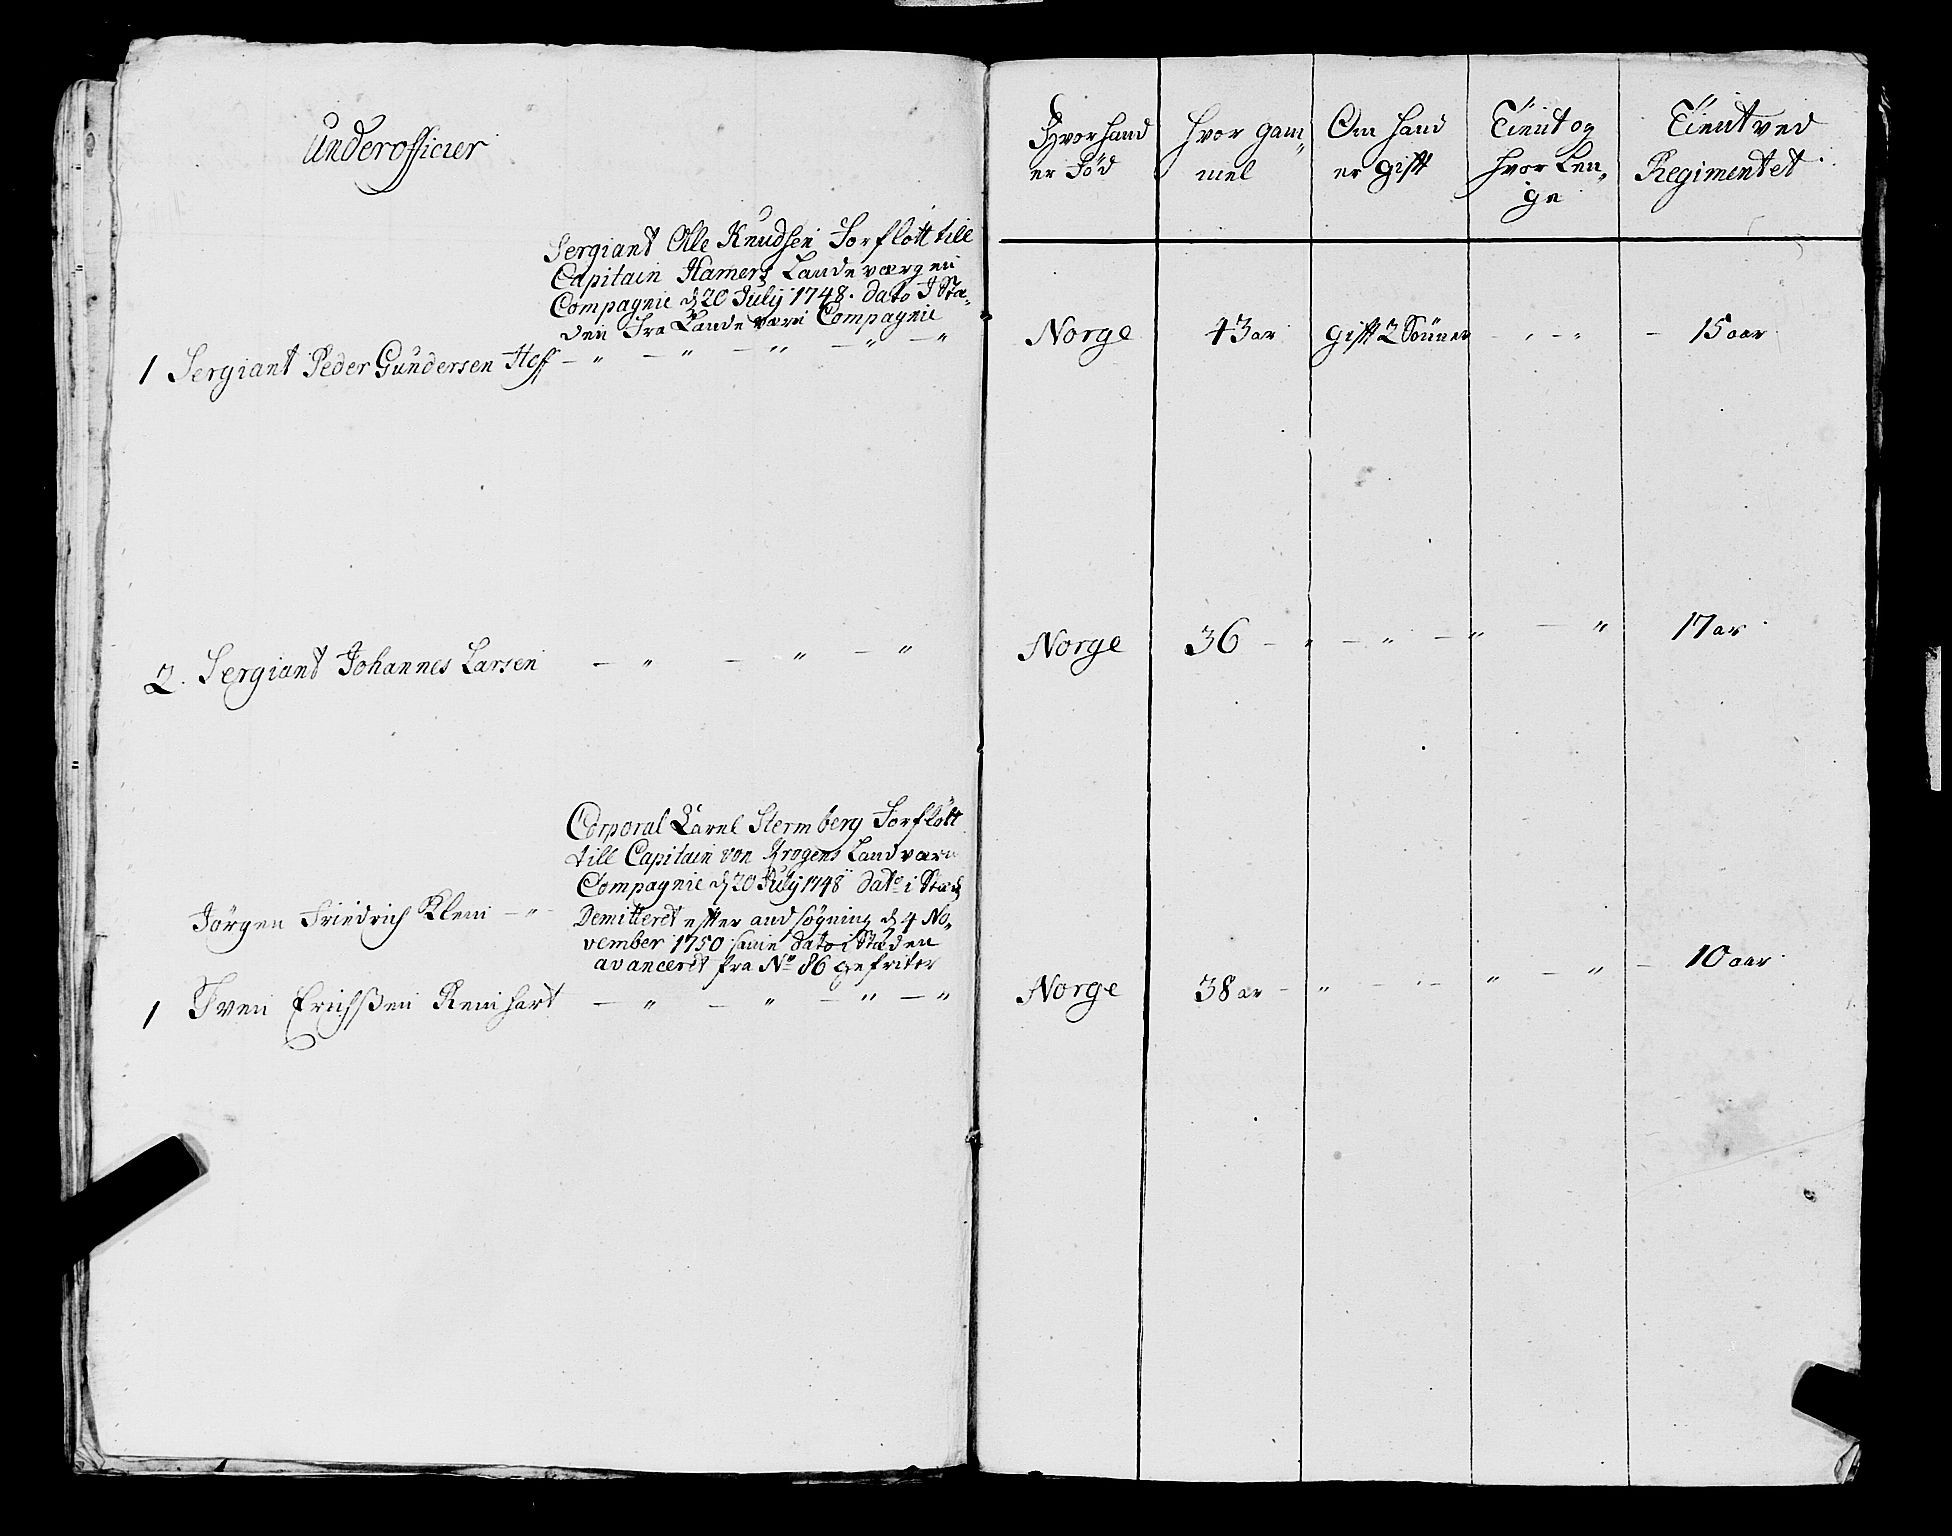 Underofficier
Sergiant Olle Knudsen Forflött till
Capitain Hamers Landeværgen
Compagnie d. 20 July 1748. dato I Stæ-
den Fra Lande værn Compagnie
1 Sergiant Peder Gundersen Hoff — " — " — " — " — "
2. Sergiant Johannes Larsen — " — " — "
Corporal Stermberg Forflött
till Capitain von Krogens Landværn
Compagnie d. 20 July 1748 dato i Stæd
Jörgen Friedrich Klem — " — Demitteret efter andsögning d. 4 No-
vember 1750 samme dato i Stæden
avanceret fra No 86 gefriter
1 Iven Erichsen Reinhart — " — " — " — "
Hvor hand er Föd
Hvor gam-mel
Om hand er gift
Tient og hvor Len-ge
Tient ved Regimentet
Norge 43 ar gift 2 Sönner — " — " — 15 aar
Norge 36 — " — " — " — " 17 ar
Norge 38 ar — " — " — " — " — 10 aar